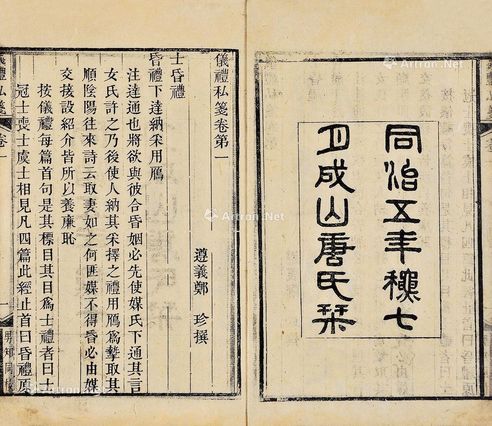 同治五年穐七
月成山唐氏栞
儀禮私箋卷第一
遵義鄭 珍撰
士昏禮
昏禮下達納采用鴈
注達通也將欲與彼合昏姻必先使媒氏下通其言
女氏許之乃後使人納其采擇之禮用鴈爲摯取其
順陰陽往來詩云取妻如之何匪媒不得昏必由媒
交接設紹介皆所以養廉恥
按儀禮每篇首句是其標目其目爲士禮者曰士
冠士喪士虞士相見凡四篇此經止首曰昏禮
禮私箋 卷一
Artron.Net